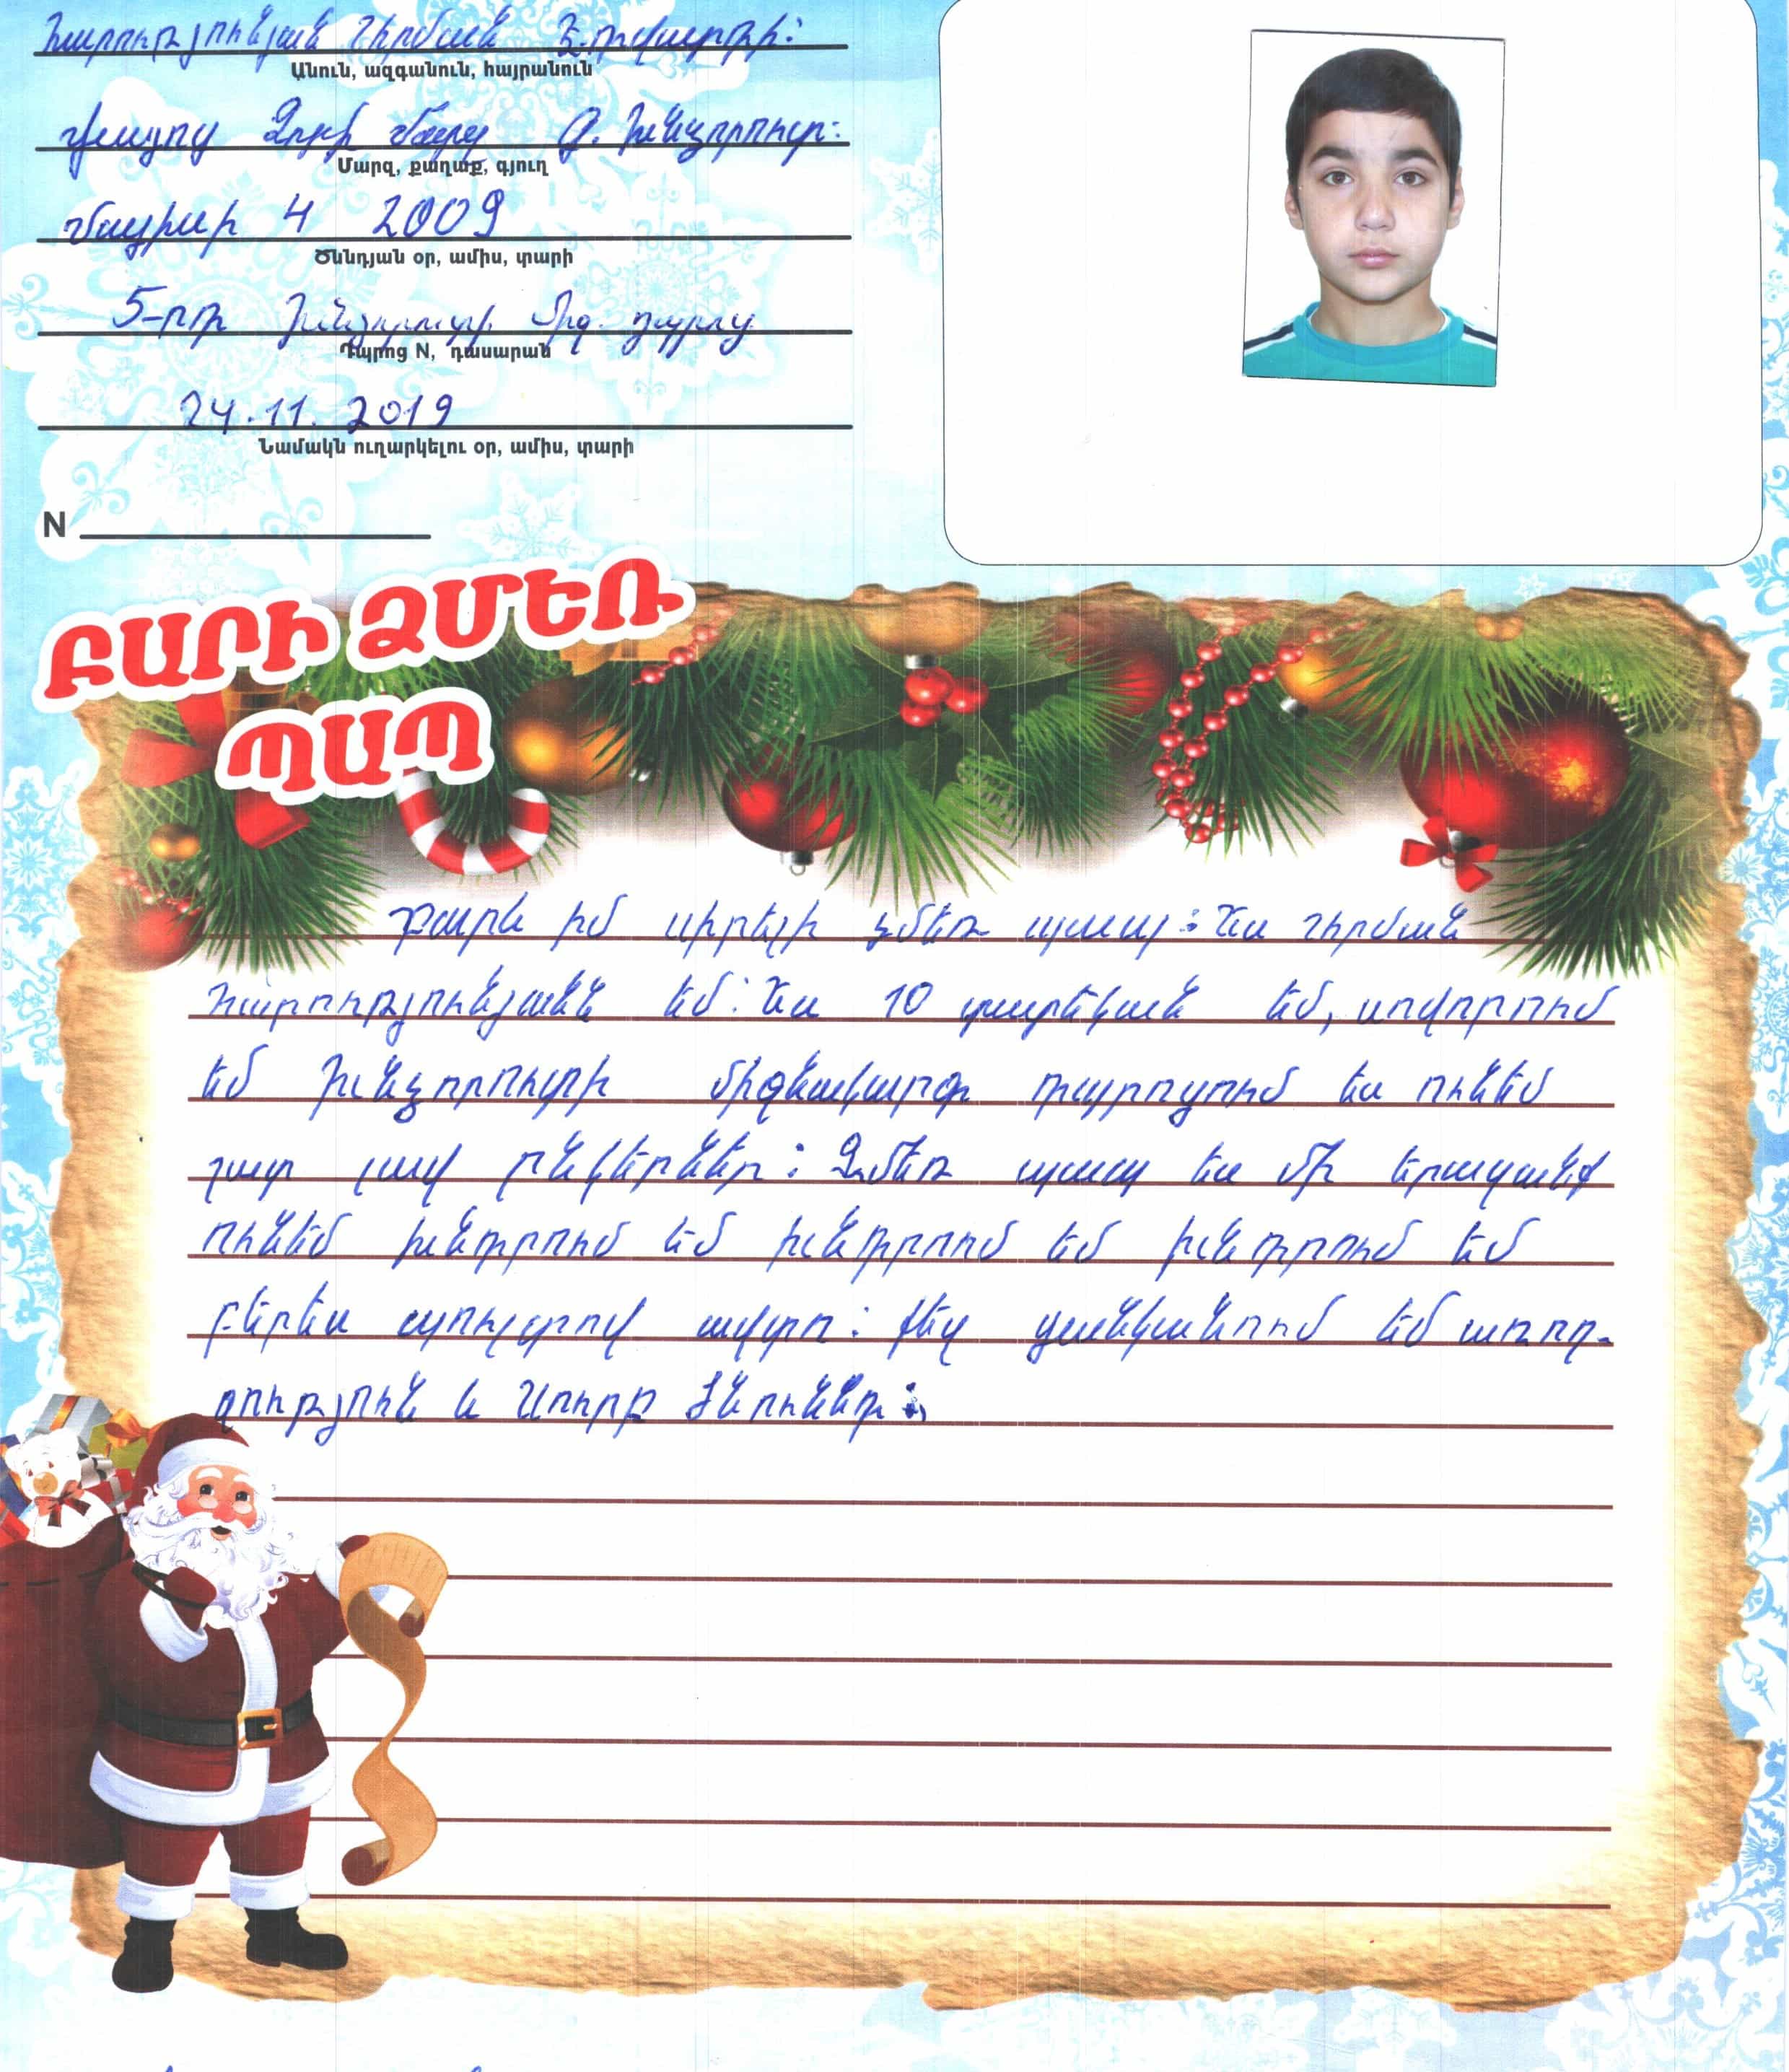 Հարությունյան Շիրման Էդվարդի:
Անուն, ազգանուն, հայրանուն
Վայոց Ձորի մարզ Գ. Խնձորուտ:
Մարզ, քաղաք, գյուղ
Մայիսի 4 2009
Ծննդյան օր, ամիս, տարի
5-րդ Խնձորուտի միջ. դպրոց
Դպրոց N, դասարան
24.11.2019
Նամակն ուղարկելու օր, ամիս, տարի
N
ԲԱՐԻ ՁՄԵՌ
ՊԱՊ
Բարև իմ սիրելի ձմեռ պապ: Ես Շիրման
Հարությունյանն եմ: Ես 10 տարեկան եմ, սովորում
եմ Խնձորուտի միջնակարգ դպրոցում ես ունեմ
շատ լավ ընկերներ: Ձմեռ պապ ես մի երազանք
ունեմ խնդրում եմ խնդրում եմ խնդրում եմ
բերես պուլտով ավտո: Քեզ ցանկանում եմ առող-
ջություն և Սուրբ Ծնունդ: